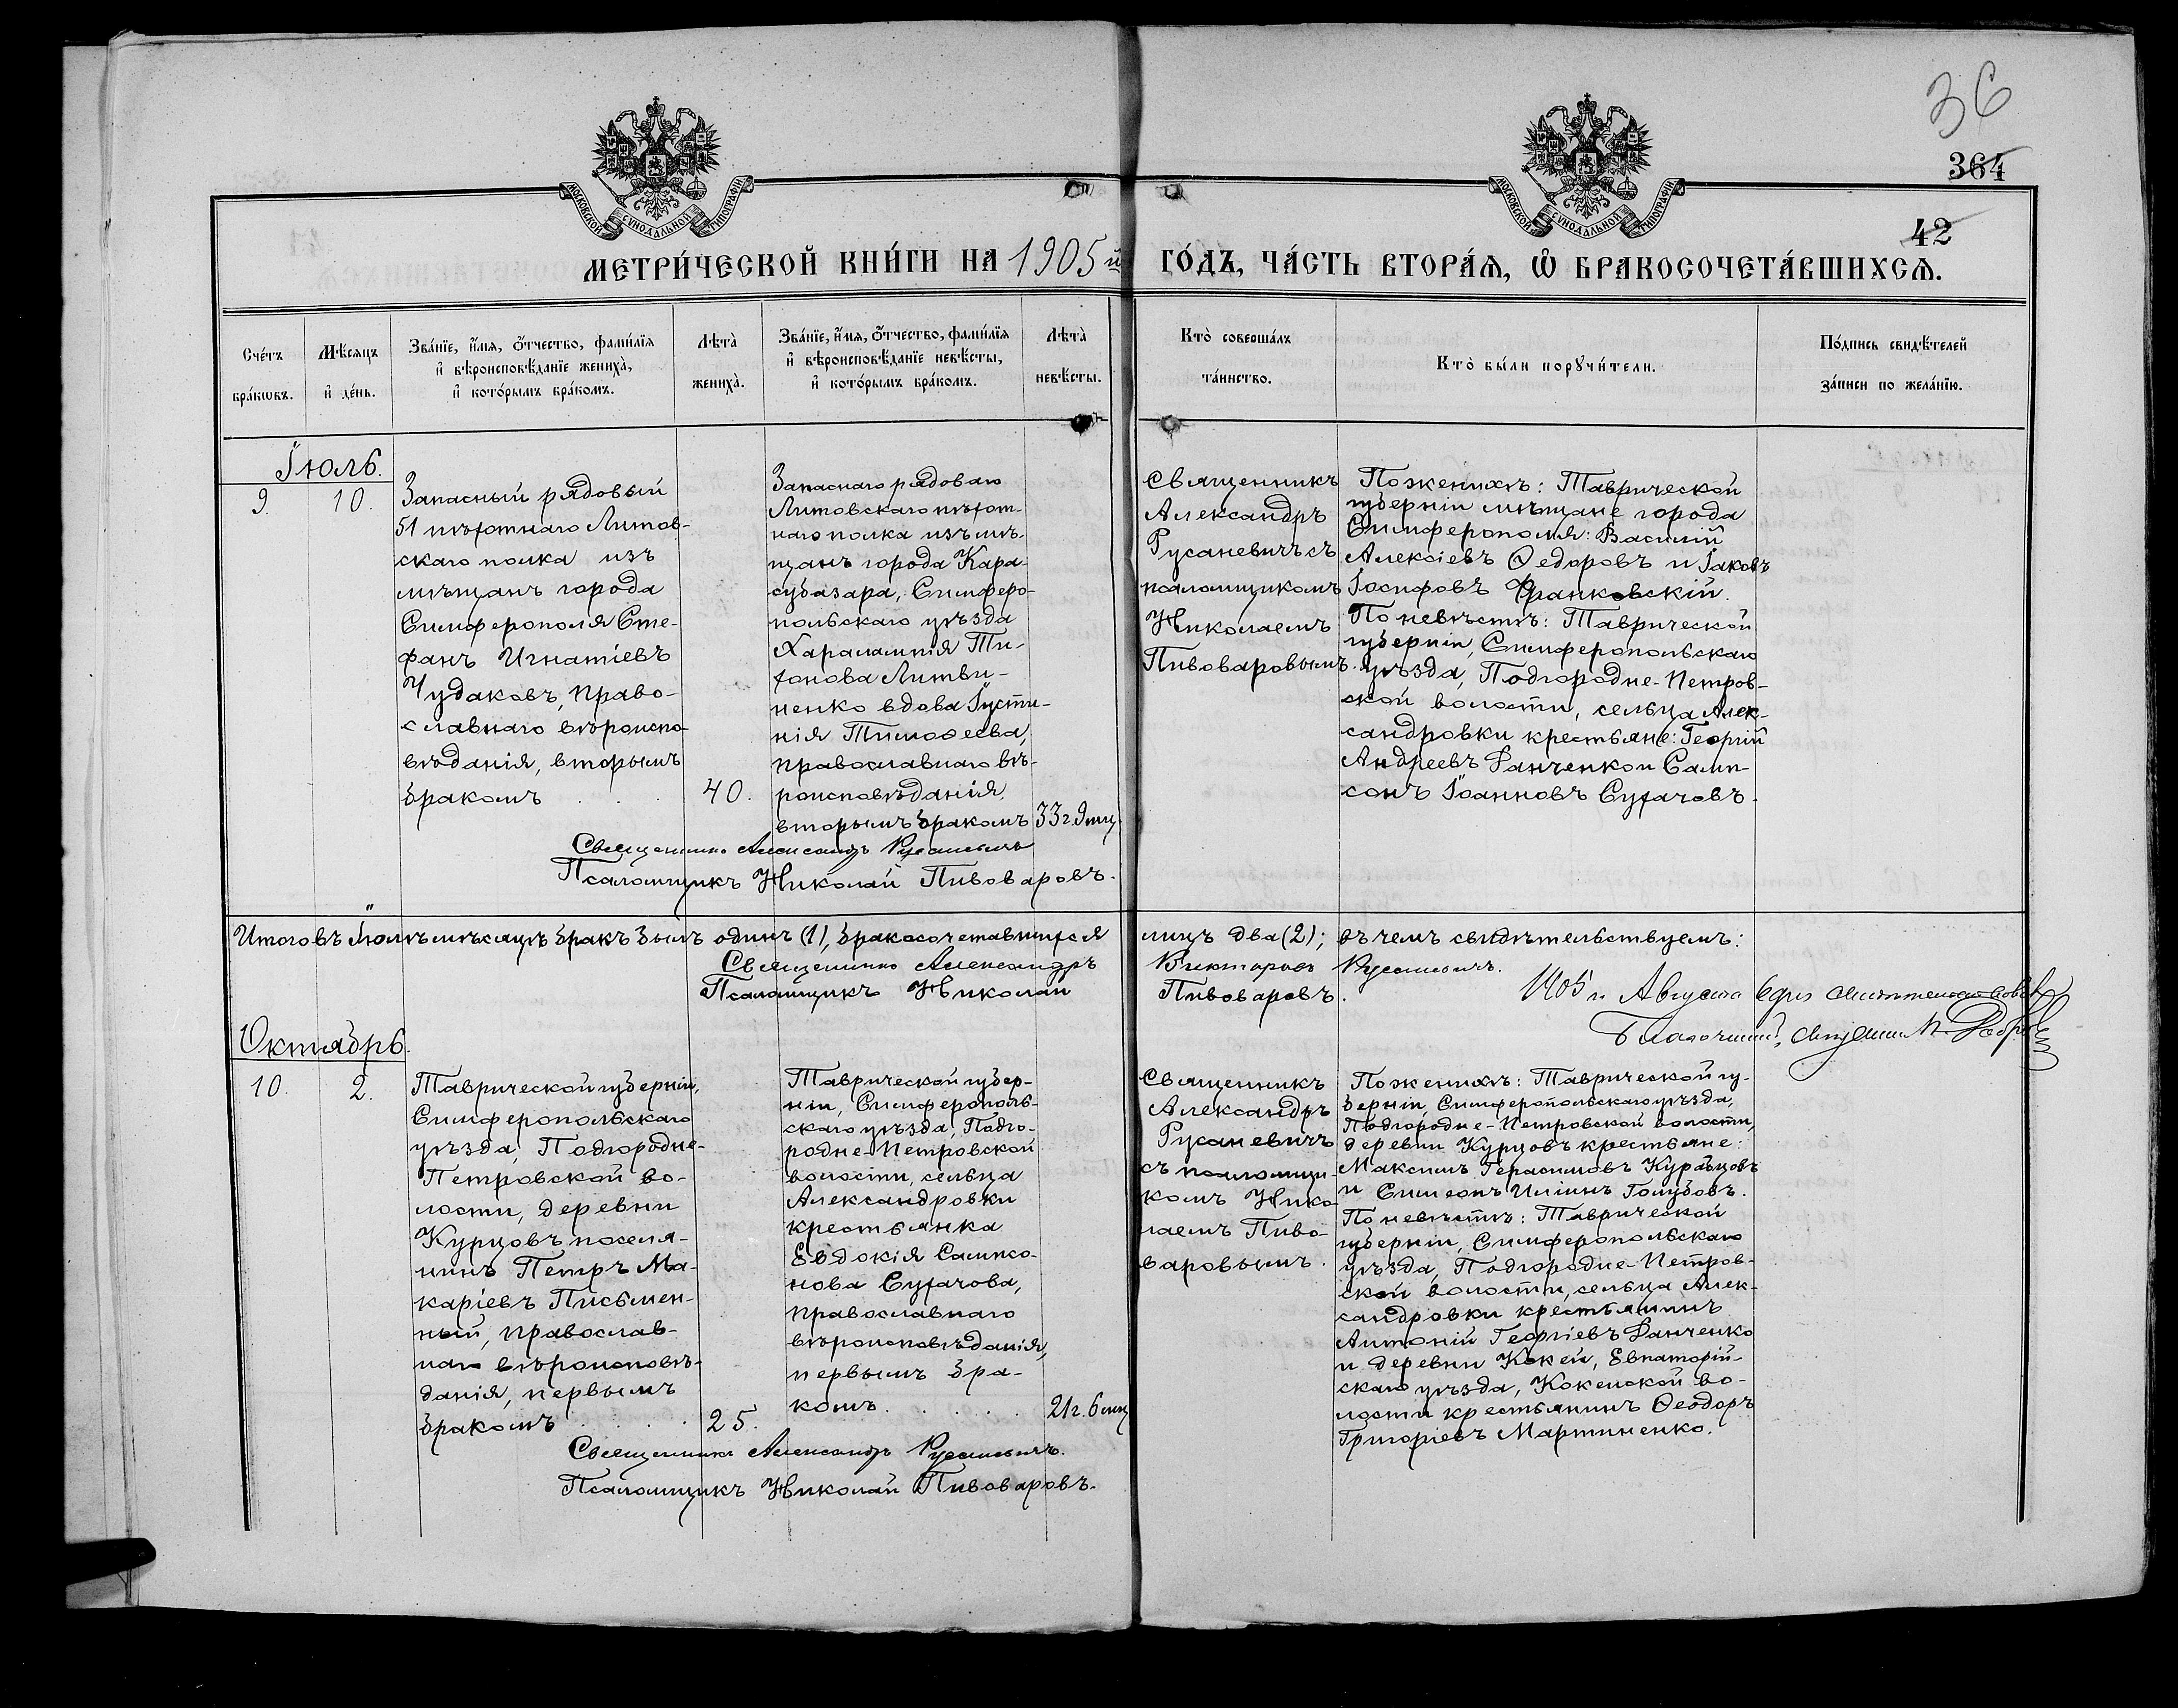 36
364
42
МОСКОВСКОЙ СѴНОДАЛЬНОЙ ТИПОГРАФІИ
МОСКОВСКОЙ СѴНОДАЛЬНОЙ ТИПОГРАФІИ
МЕТРИ́ЧЕСКОЙ КНИ́ГИ НА 1905й ГО́ДЪ, ЧА́СТЬ ВТОРА́Я, Ѡ҆ БРАКОСОЧЕТА́ВШИХСЯ.
Сче́тъ
бра́кωвъ.
Мѣ́сяцъ
и҆ де́нь.
Зва́нїе, и҆́мя, о҆́тчество, фами́лїя
и҆ вѣроисповѣ́данїе жениха̀,
и҆ кото́рымъ бра́комъ.
Лѣта̀
жениха̀.
Зва́нїе, и҆́мя, о҆́тчество, фами́лїя
и҆ вѣроисповѣ́данїе невѣ́сты,
и҆ кото́рымъ бра́комъ.
Лѣта̀
невѣ́сты.
Кто̀ соверша́лъ
та́инство.
Кто̀ бы́ли порꙋчи́тели.
По́дпись свидѣ́телей
за́писи по жела́нїю.
Іюль.
9.
10.
Запасный рядовый
51 пѣхотнаго Литов-
скаго полка изъ
мѣщанъ города
Симферополя Сте-
фанъ Игнатіевъ
Чудаковъ, право-
славнаго вѣроиспо-
вѣданія, вторымъ
бракомъ . . .
40.
Запаснаго рядоваго
Литовскаго пѣхот-
наго полка изъ мѣ-
щанъ города Кара-
субазара, Симферо-
польскаго уѣзда
Харалампія Ти-
хонова Литви-
ненко вдова Іусти-
нія Тимоѳеева,
православнаго вѣ-
роисповѣданія,
вторымъ бракомъ
33 г. 9 мц
Священникъ
Александръ
Русаневичъ съ
псаломщикомъ
Николаемъ
Пивоваровымъ.
По женихѣ: Таврической
губерніи мѣщане города
Симферополя: Василій
Алексіевъ Ѳедоровъ и Іаковъ
Іосифовъ Франковскій.
По невѣстѣ: Таврической
губерніи, Симферопольскаго
уѣзда, Подгородне-Петров-
ской волости, сельца Алек-
сандровки крестьяне: Георгій
Андреевъ Ганченко и Самп-
сонъ Іоанновъ Сухачовъ.
Священникъ Александръ Русаневичъ
Псаломщикъ Николай Пивоваровъ.
Итого въ Іюлѣ мѣсяцѣ бракъ былъ одинъ (1), бракосочетавшихся лицъ два (2); въ чемъ свидѣтельствуемъ:
Священникъ Александръ Викторовъ Русаневичъ.
Псаломщикъ Николай Пивоваровъ.
1905 г. Августа 6 дня свидѣтельствовалъ
Благочинный, священникъ
Октябрь.
10.
2.
Таврической губерніи,
Симферопольскаго
уѣзда, Подгородне-
Петровской во-
лости, деревни
Курцовъ поселя-
нинъ Петръ Ма-
каріевъ Письмен-
ный, православ-
наго вѣроисповѣ-
данія, первымъ
бракомъ . . . .
25.
Таврической губер-
ніи, Симферополь-
скаго уѣзда, Подго-
родне-Петровской
волости, сельца
Александровки
крестьянка
Евдокія Сампсо-
нова Сухачова,
православнаго
вѣроисповѣданія,
первымъ бра-
комъ . . . . .
21 г. 6 мц
Священникъ
Александръ
Русаневичъ
съ псаломщи-
комъ Нико-
лаемъ Пиво-
варовымъ.
По женихѣ: Таврической гу-
берніи, Симферопольскаго уѣзда,
Подгородне-Петровской волости,
деревни Курцовъ крестьяне:
Максимъ Герасимовъ Курьцовъ
и Симеонъ Иліинъ Голубовъ.
По невѣстѣ: Таврической
губерніи, Симферопольскаго
уѣзда, Подгородне-Петров-
ской волости, сельца Алек-
сандровки крестьянинъ
Антоній Георгіевъ Ганченко
и деревни Кокей, Евпаторій-
скаго уѣзда, Кокейской во-
лости крестьянинъ Ѳеодоръ
Григоріевъ Мартиненко.
Священникъ Александръ Русаневичъ.
Псаломщикъ Николай Пивоваровъ.